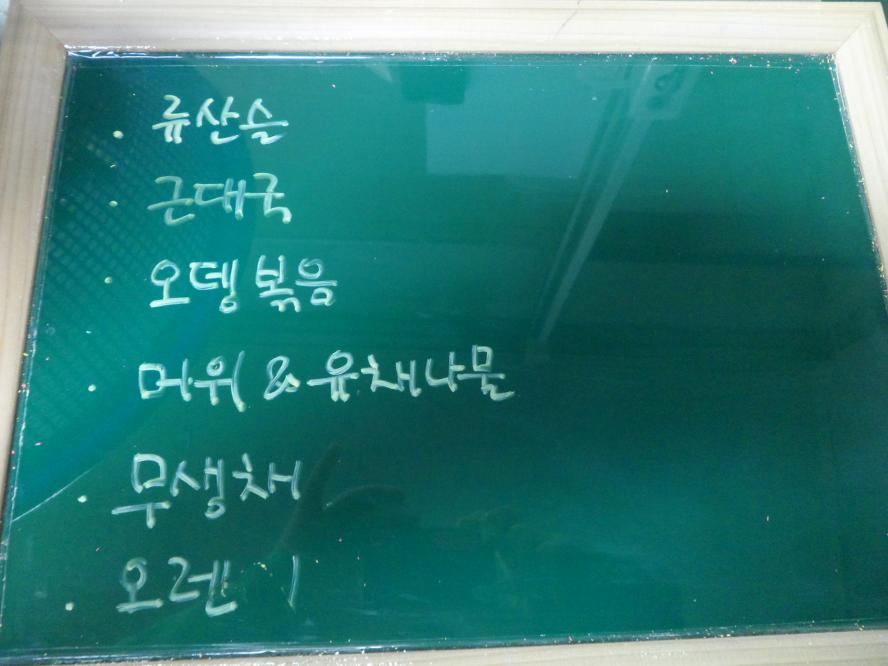 · 류산슬
· 근대국
· 오뎅볶음
· 머위 & 유채나물
· 무생채
· 오렌